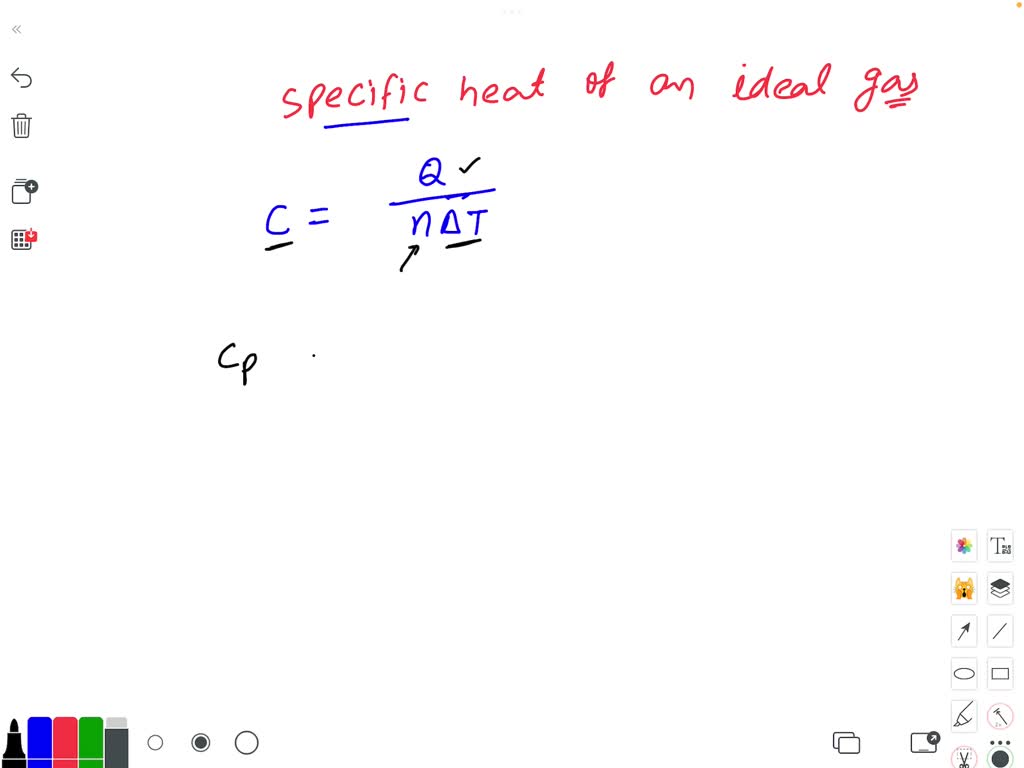 specific heat of an ideal gas
C = Q / nΔT
Cp